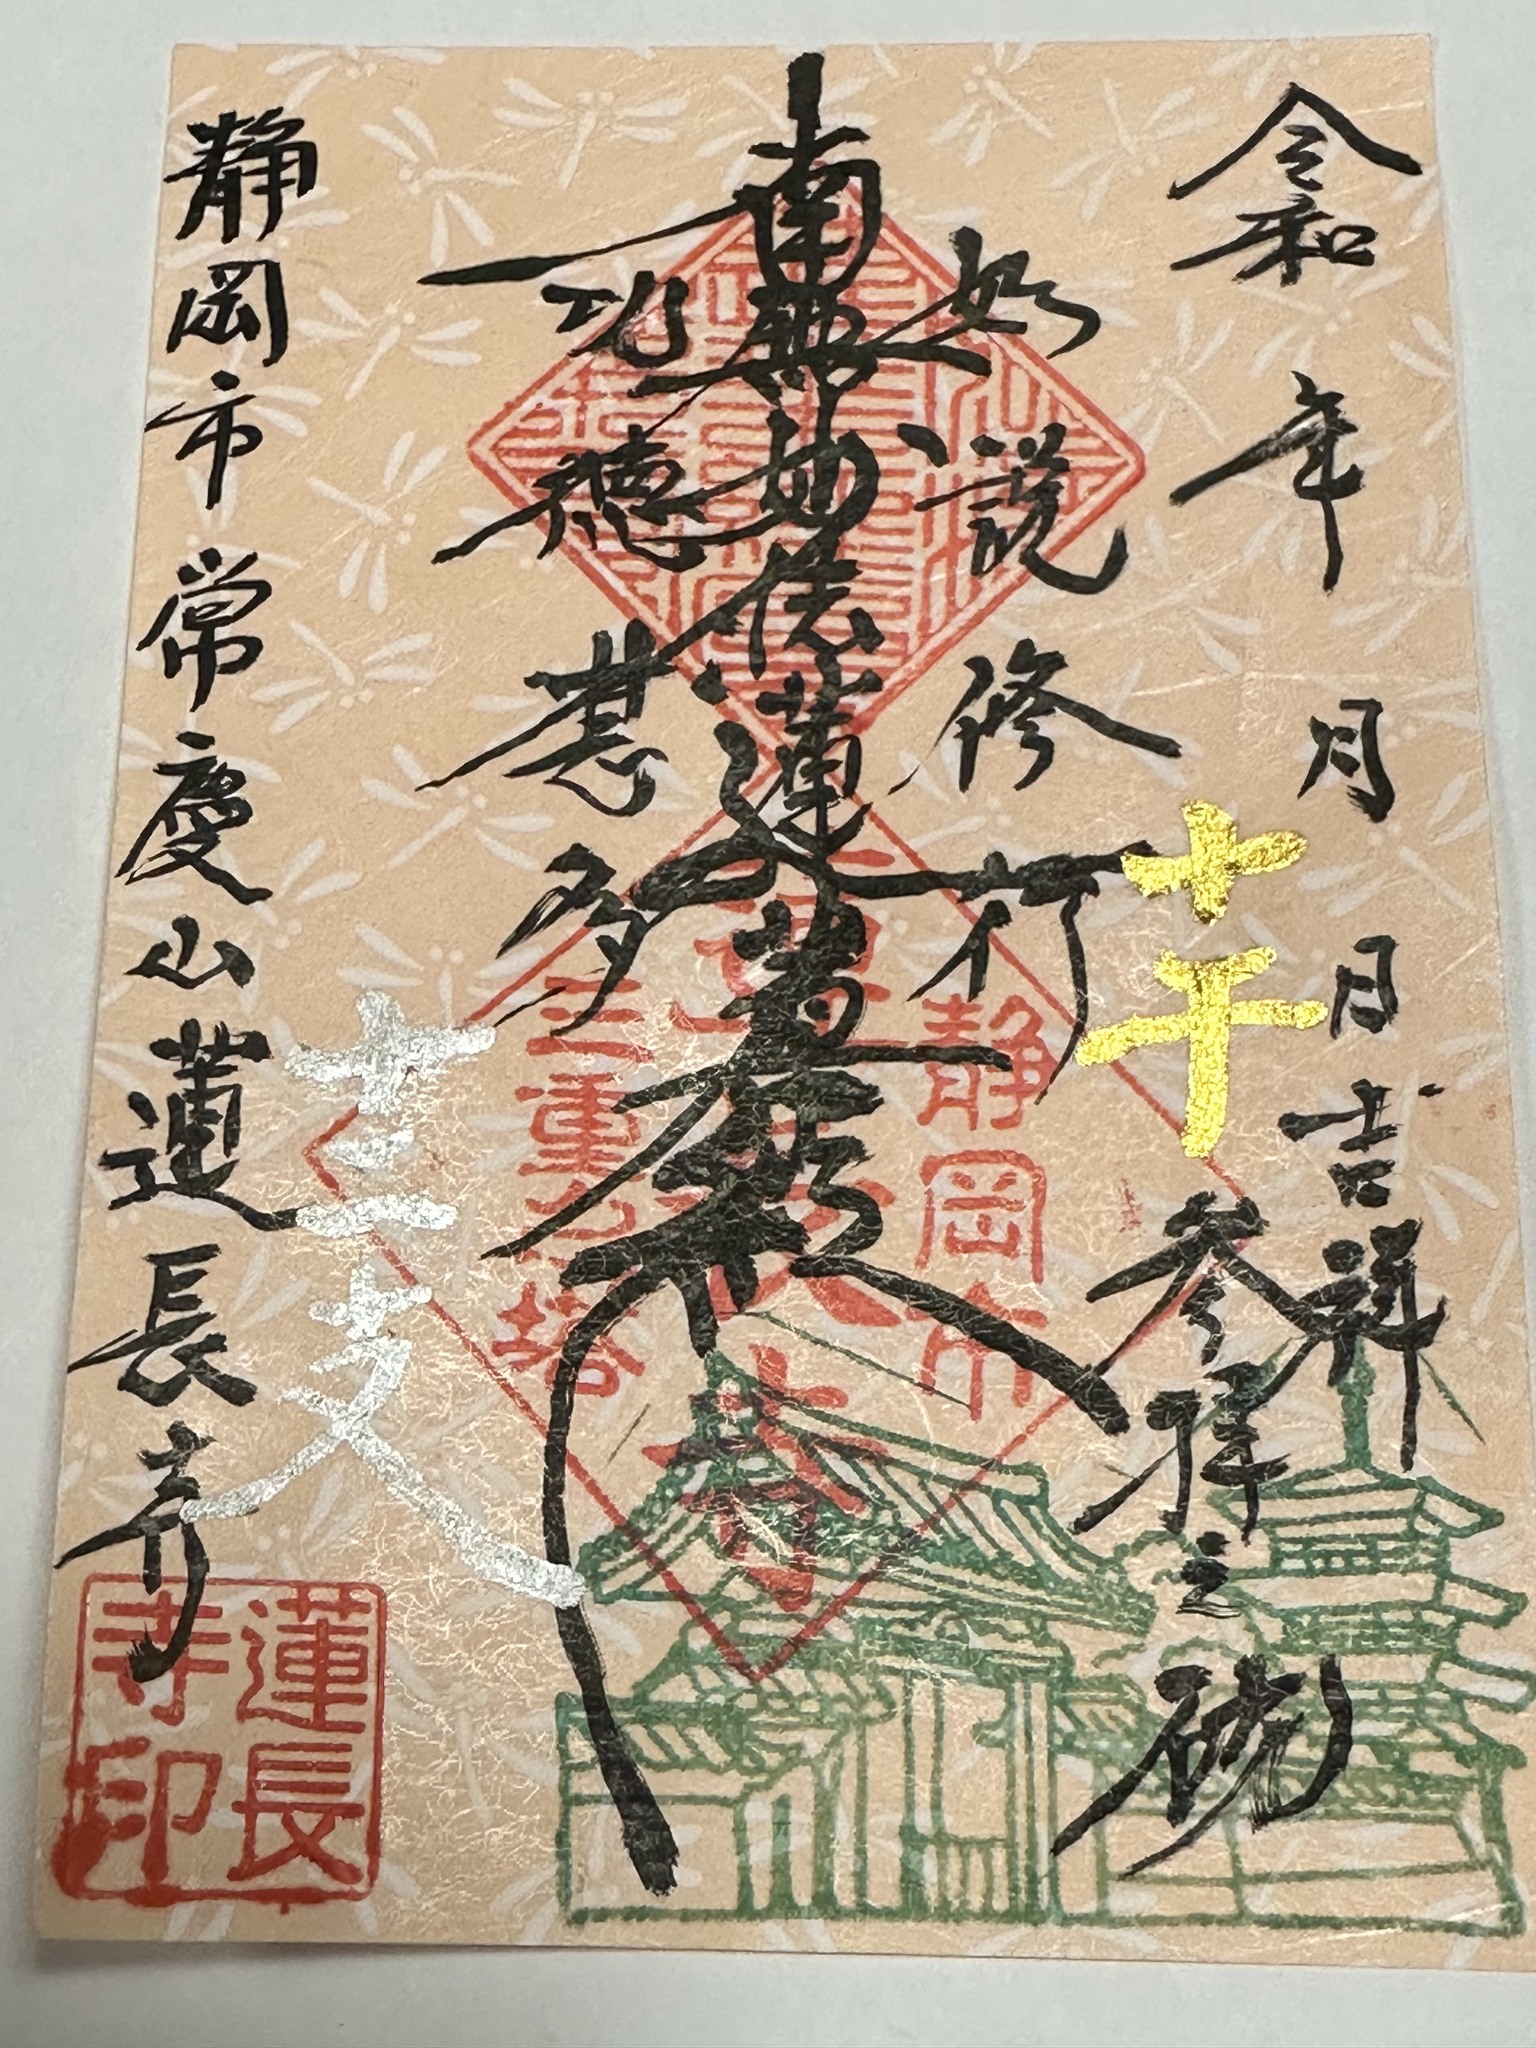 令和 年 月 日 吉祥
参拝之砌
十干
如説修行
南無妙法蓮華経
功徳甚多
十二支
静岡市 常慶山 蓮長寺
静岡市
蓮長寺印